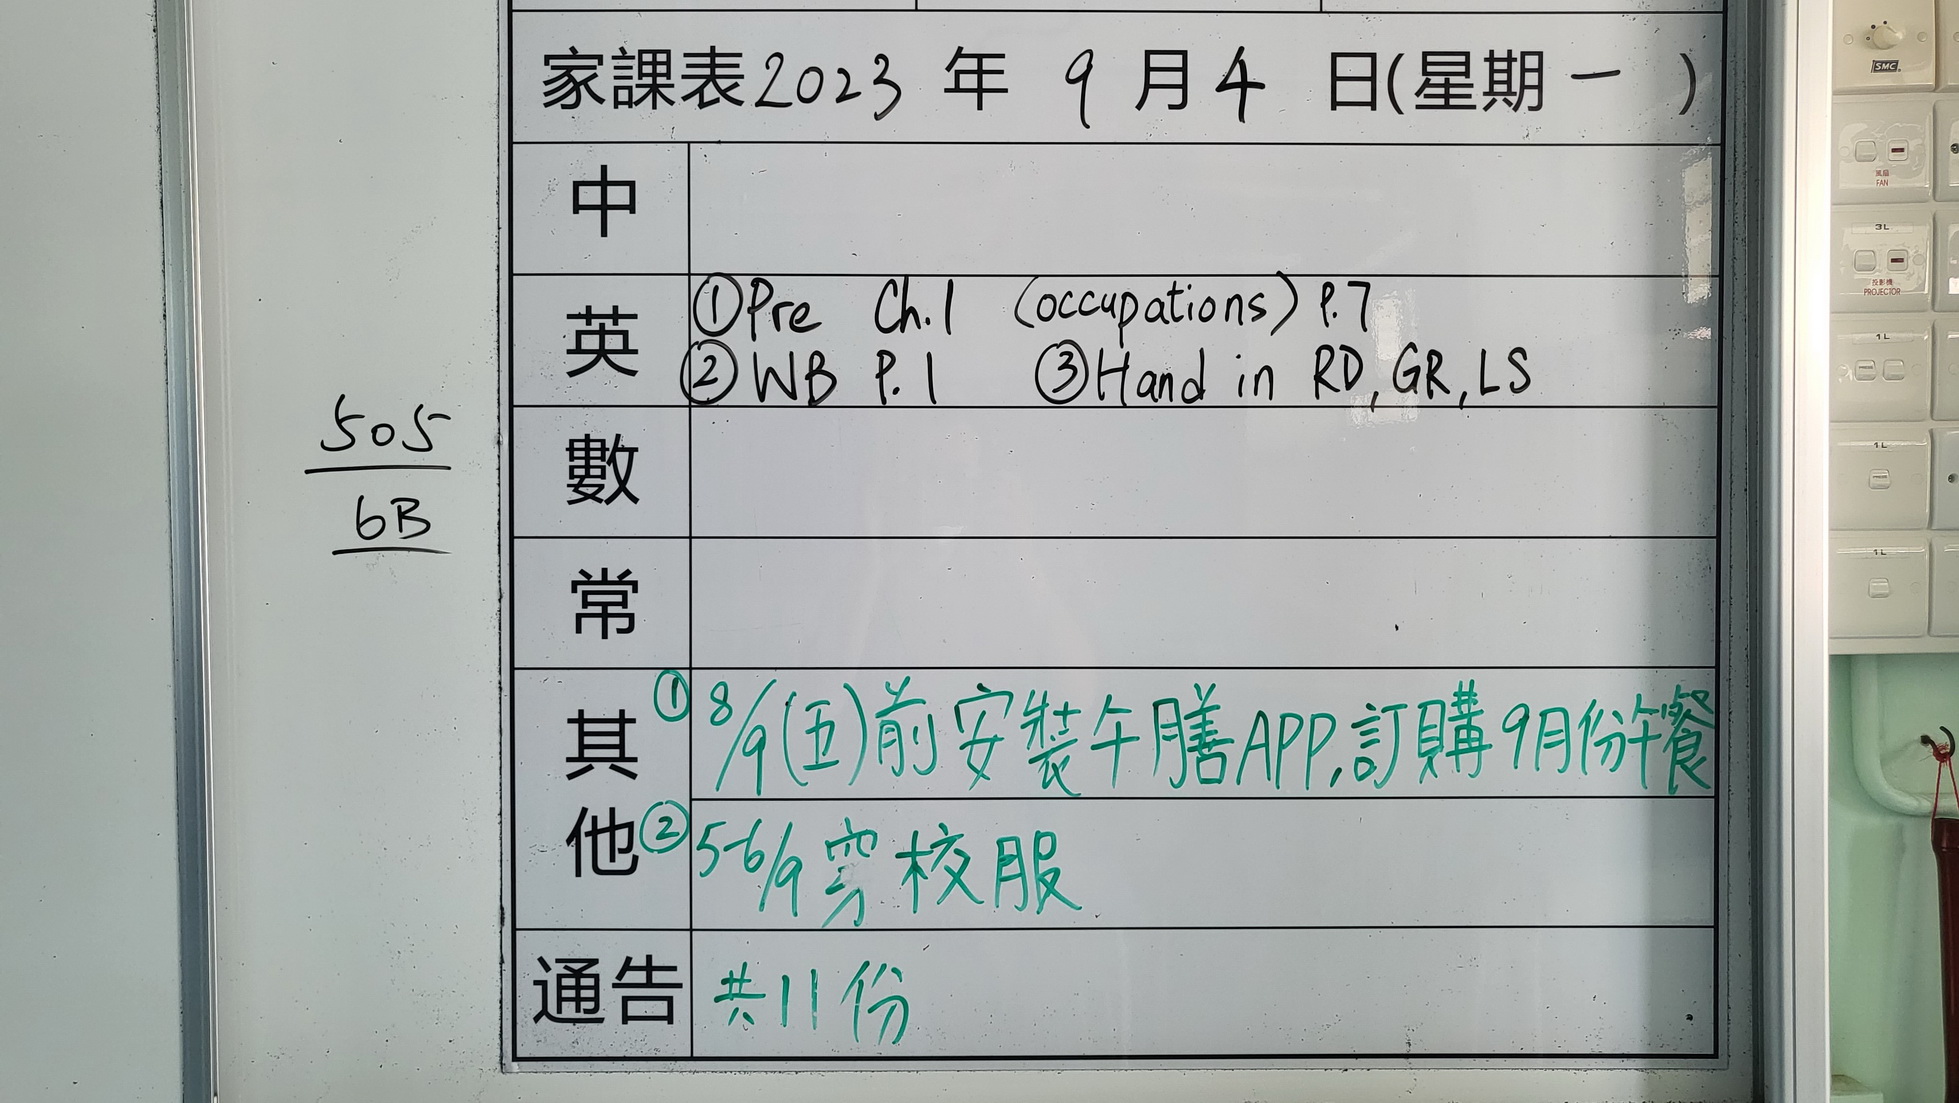 家課表2023 年 9 月 4 日(星期 一 )
中
英
①Pre Ch.1 (occupations) P.7
②WB P.1 ③Hand in RD, GR, LS
數
常
其他
①8/9(五)前安裝午膳APP,訂購9月份午餐
②5-6/9穿校服
通告
共11份
505
6B
SMC
風扇
FAN
3L
投影機
PROJECTOR
1L
1L
1L